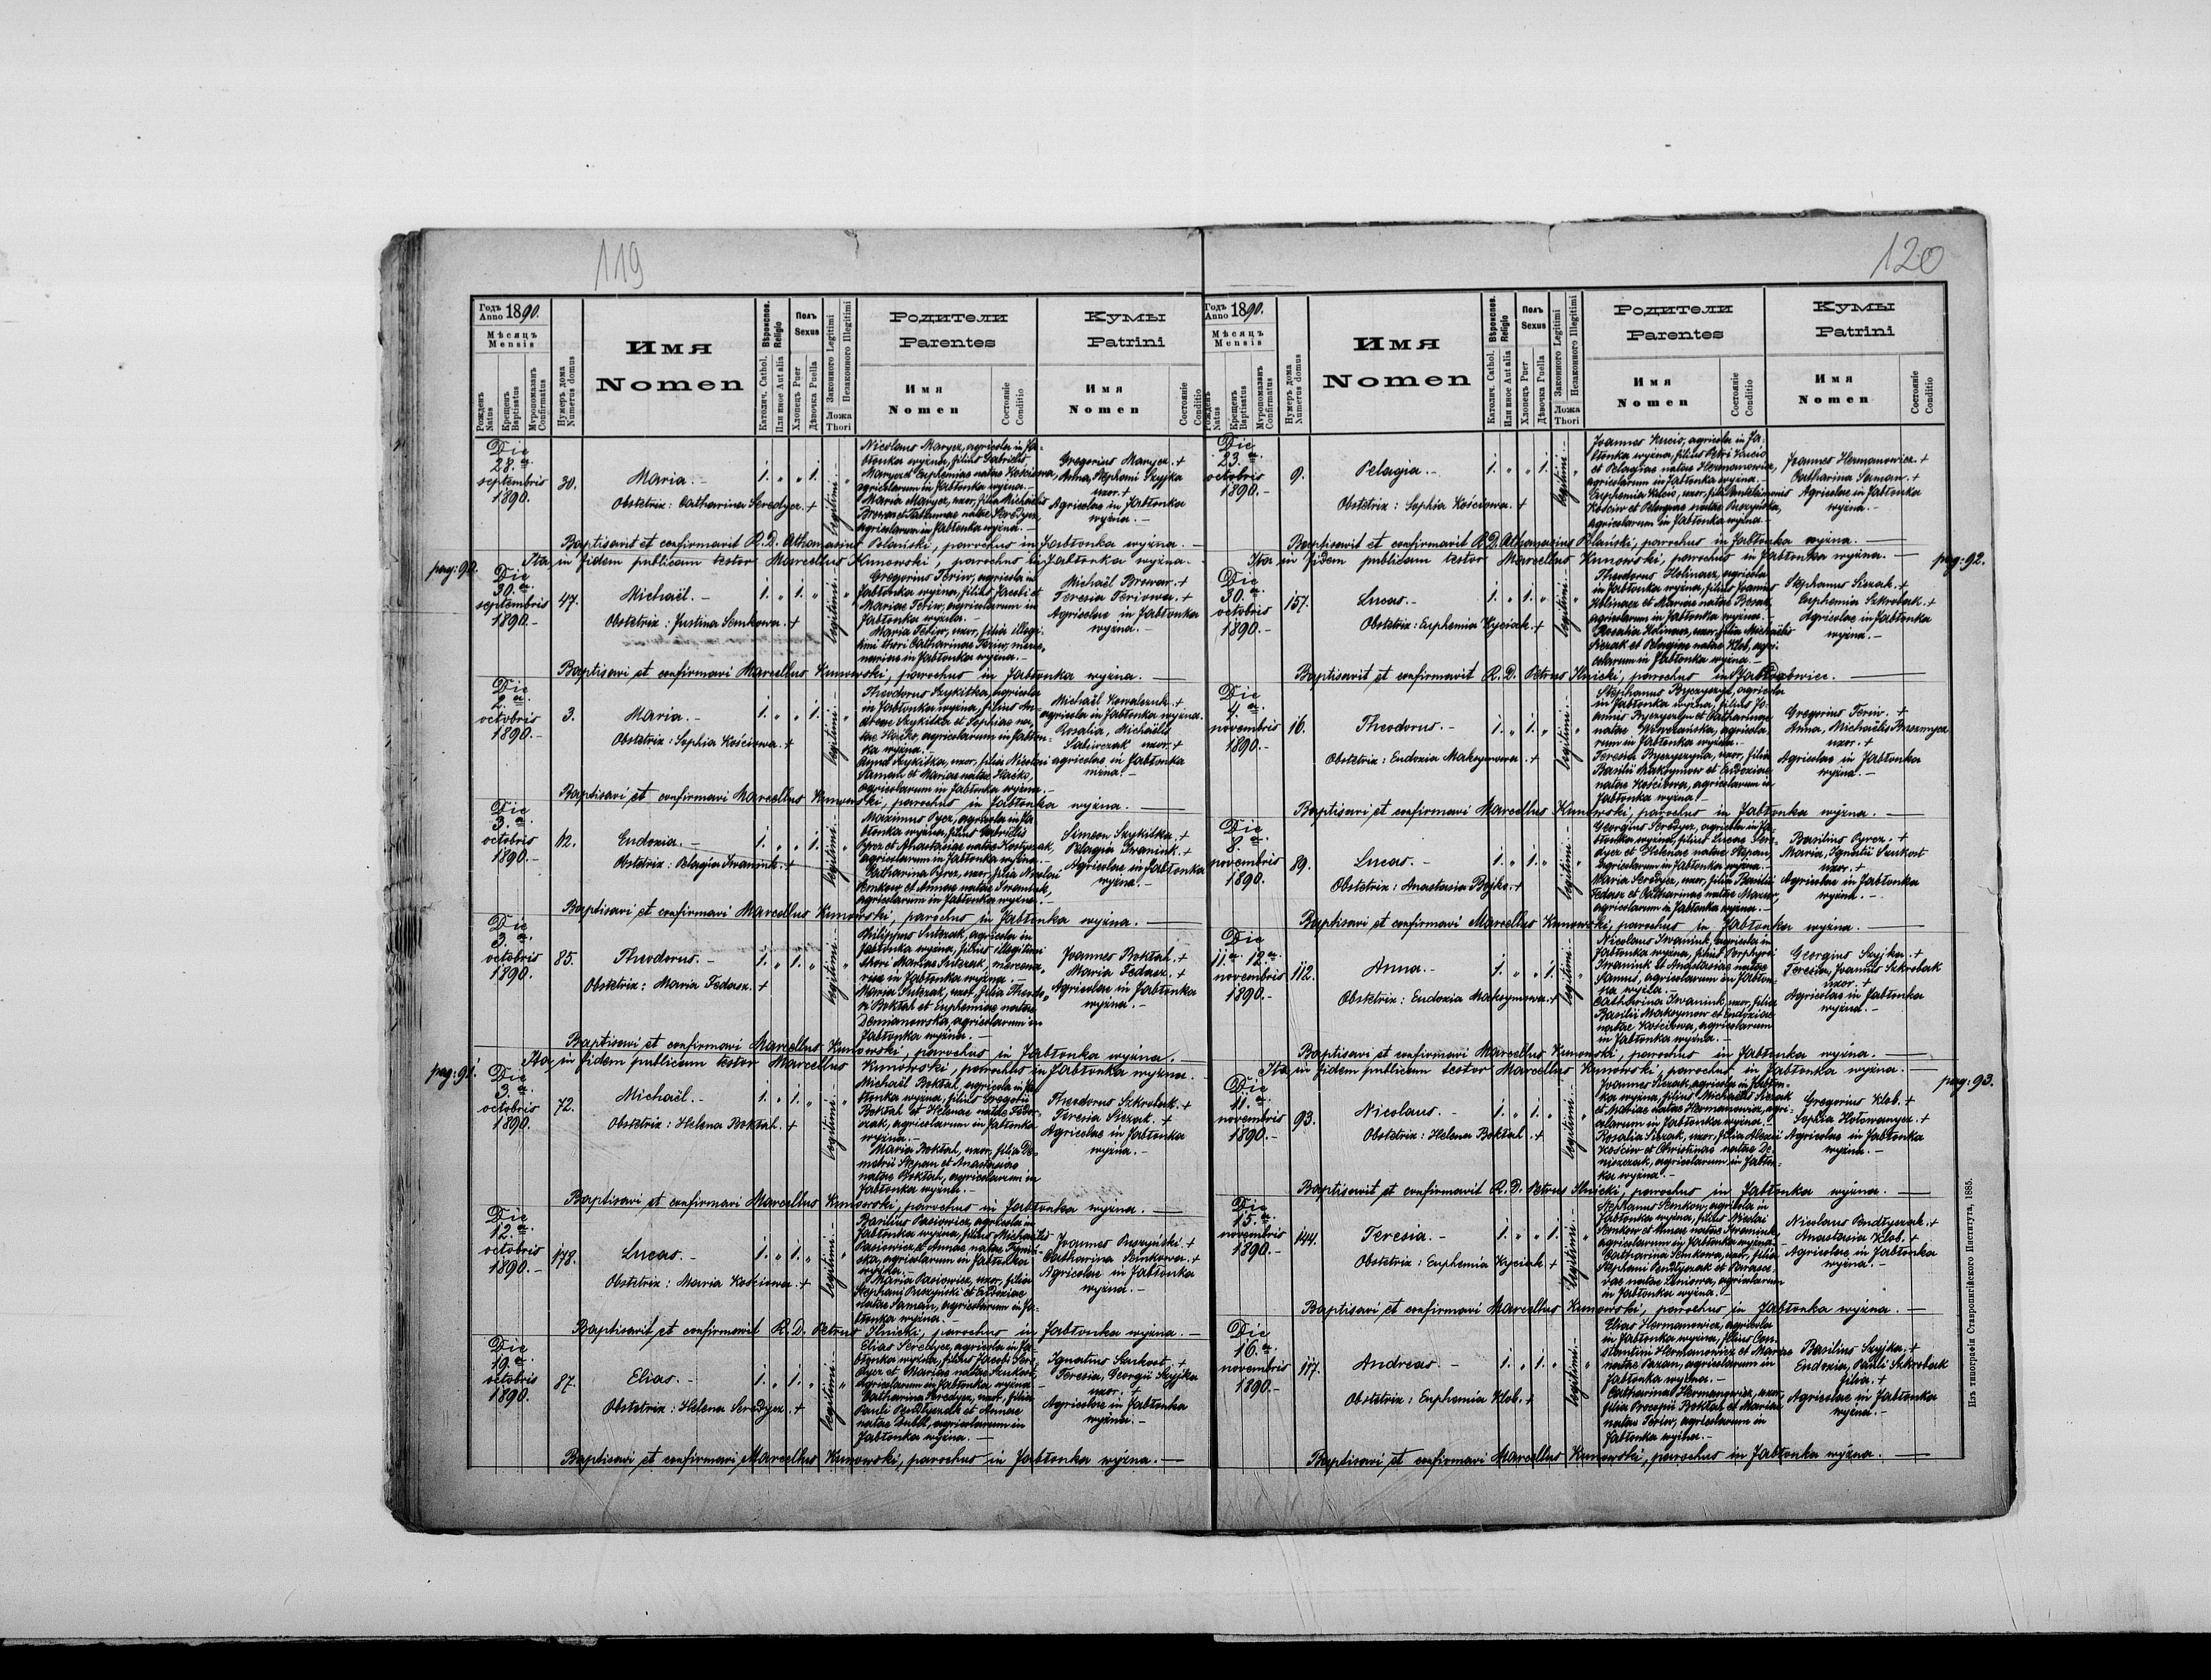 119
Годъ 1890.
Anno
Мѣсяцъ
Mensis
Рожденъ
Natus
Крещенъ
Baptisatus
Мѵропомазанъ
Confirmatus
Нумеръ дома
Numerus domus
Имя
Nomen
Вѣроиспов.
Religio
Католич. Cathol.
Или иное Aut alia
Полъ
Sexus
Хлопецъ Puer
Дѣвочка Puella
Законного Legitimi
Незаконного Illegitimi
Ложа
Thori
Родители
Parentes
Имя
Nomen
Состоянie
Conditio
Кумы
Patrini
Имя
Nomen
Состоянie
Conditio
Die
28.a
septembris
1890.
30.
Maria. -
Obstetrix: Catharina Seredycz. +
1. „ „ 1.
legitimi. -
Nicolaus Marycz, agricola in Ja-
błonka wyżna, filius Gabrielis
Marycz et Euphemiae natae Kościowa,
agricolarum in Jabłonka wyżna. -
Maria Marycz, uxor, filia Michaëlis
agricolarum in Jabłonka wyżna. -
Gregorius Marycz. +
Anna, Stephani Szyjka
uxor. +
Agricolae in Jabłonka
wyżna. -
Baptisavit et confirmavit R. D. Athanasius Polański, parochus in Jabłonka wyżna. -
pag: 90. Ita in fidem publicam testor Marcellus Kunowski, parochus in Jabłonka wyżna. -
Die
30.a
septembris
1890. -
47.
Michaël. -
Obstetrix: Justina Semkowa. +
1. „ 1. „
legitimi. -
Gregorius Feriw, agricola in
Jabłonka wyżna, filius Jacobi et
Mariae Feriw, agricolarum in
Jabłonka wyżna. -
Maria Feriw, uxor, filia illegi-
timi thori Catharinae Feriw, merce-
nariae in Jabłonka wyżna. -
Michaël Browar. +
Teresia Feriowa. +
Agricolae in Jabłonka
wyżna. -
Baptisavi et confirmavi Marcellus Kunowski, parochus in Jabłonka wyżna. -
Die
2.a
octobris
1890. -
3.
Maria. -
Obstetrix: Sophia Kościowa. +
1. „ „ 1.
legitimi. -
Theodorus Szykitka, agricola
in Jabłonka wyżna, filius An-
dreae Szykitka et Sophiae na-
tae Haćko, agricolarum in Jabłon-
ka wyżna. -
Anna Szykitka, uxor, filia Nicolai
Saman et Mariae natae Haćko,
agricolarum in Jabłonka wyżna. -
Michaël Kowalczuk. +
agricola in Jabłonka wyżna.
Rosalia, Michaëlis
uxor. +
agricolae in Jabłonka
Baptisavi et confirmavi Marcellus Kunowski, parochus in Jabłonka wyżna. -
Die
3.a
octobris
1890. -
62.
Eudoxia. -
Obstetrix: Pelagia Iwaniuk. +
1. „ „ 1.
legitimi. -
Maximus Pyrcz, agricola in Ja-
błonka wyżna, filius Gabrielis
Pyrcz et Anastasiae natae Kostyszak,
agricolarum in Jabłonka wyżna. -
Catharina Pyrcz, uxor, filia Nicolai
Semkow et Annae natae Iwaniuk,
agricolarum in Jabłonka wyżna. -
Simeon Szykitka. +
Pelagia Iwaniuk. +
Agricolae in Jabłonka
wyżna. -
Baptisavi et confirmavi Marcellus Kunowski, parochus in Jabłonka wyżna. -
Die
3.a
octobris
1890.
85.
Theodorus. -
Obstetrix: Maria Fedasz. +
1. „ 1. „
legitimi. -
Philippus Sutczak, agricola in
Jabłonka wyżna, filius illegitimi
thori Mariae Sutczak, mercena-
riae in Jabłonka wyżna. -
Maria Sutczak, uxor, filia Theodo-
ri Boktah et Euphemiae natae
Demianowska, agricolarum in
Jabłonka wyżna. -
Joannes Boktah. +
Maria Fedasz. +
Agricolae in Jabłonka
wyżna. -
Baptisavi et confirmavi Marcellus Kunowski, parochus in Jabłonka wyżna. -
pag: 91. Ita in fidem publicam testor Marcellus Kunowski, parochus in Jabłonka wyżna. -
Die
3.a
octobris
1890.
72.
Michaël. -
Obstetrix: Helena Boktah. +
1. „ 1. „
legitimi. -
Michaël Boktah, agricola in Ja-
błonka wyżna, filius Gregorii
Boktah et Helenae natae Fedor-
czak, agricolarum in Jabłonka
wyżna. -
Maria Boktah, uxor, filia De-
metrii Stepan et Anastasiae
natae Boktah, agricolarum in
Jabłonka wyżna. -
Theodorus Szkrobak. +
Teresia Siczak. +
Agricolae in Jabłonka
wyżna. -
Baptisavi et confirmavi Marcellus Kunowski, parochus in Jabłonka wyżna. -
Die
12.a
octobris
1890. -
178.
Lucas. -
Obstetrix: Maria Kościowa. +
1. „ 1. „
legitimi. -
Basilius Pasiowicz, agricola in
Jabłonka wyżna, filius Michaëlis
Pasiowicz et Annae natae
agricolarum in Jabłonka
wyżna. -
Maria Pasiowicz, uxor, filia
Stephani Puszyński et Eudoxiae
natae Saman, agricolarum in Ja-
błonka wyżna. -
Joannes Puszyński. +
Catharina Semkowa. +
Agricolae in Jabłonka
wyżna. -
Baptisavit et confirmavit R. D. Petrus Ilnicki, parochus in Jabłonka wyżna. -
Die
19.a
octobris
1890.
87.
Elias. -
Obstetrix: Helena Seredycz. +
1. „ 1. „
legitimi. -
Elias Seredycz, agricola in Ja-
błonka wyżna, filius Jacobi Sere-
dycz et Mariae natae Szurkot,
agricolarum in Jabłonka wyżna. -
Catharina Seredycz, uxor, filia
Pauli Pendłyszak et Annae
natae Dubk, agricolarum in
Jabłonka wyżna. -
Ignatius Szurkot. +
Teresia, Georgii Szyjka
uxor. +
Agricolae in Jabłonka
wyżna. -
Baptisavi et confirmavi, Marcellus Kunowski, parochus in Jabłonka wyżna. -
120
Годъ 1890.
Anno
Мѣсяцъ
Mensis
Рожденъ
Natus
Крещенъ
Baptisatus
Мѵропомазанъ
Confirmatus
Нумеръ дома
Numerus domus
Имя
Nomen
Вѣроиспов.
Religio
Католич. Cathol.
Или иное Aut alia
Полъ
Sexus
Хлопецъ Puer
Дѣвочка Puella
Законного Legitimi
Незаконного Illegitimi
Ложа
Thori
Родители
Parentes
Имя
Nomen
Состоянie
Conditio
Кумы
Patrini
Имя
Nomen
Состоянie
Conditio
Die
23.a
octobris
1890. -
9.
Pelagia. -
Obstetrix: Sophia Kościowa. +
1. „ „ 1.
legitimi. -
Joannes Kucio, agricola in Ja-
błonka wyżna, filius Petri Kucio
et Pelagiae natae Hermanowicz,
agricolarum in Jabłonka wyżna. -
Euphemia Kucio, uxor, filia Panteleimonis
Kościw et Pelagiae natae Puszyńska,
agricolarum in Jabłonka wyżna. -
Joannes Hermanowicz. +
Catharina Saman. +
Agricolae in Jabłonka
wyżna. -
Baptisavit et confirmavit R. D. Athanasius Polański, parochus in Jabłonka wyżna. -
Ita in fidem publicam testor Marcellus Kunowski, parochus in Jabłonka wyżna. - pag: 92.
Die
30.a
octobris
1890. -
157.
Lucas. -
Obstetrix: Euphemia Kyciak. +
1. „ 1. „
legitimi. -
Theodorus Holinacz, agricola
in Jabłonka wyżna, filius Joannis
Holinacz et Mariae natae
agricolarum in Jabłonka wyżna. -
Rosalia Holinacz, uxor, filia Michaëlis
Siczak et Pelagiae natae Klob, agri-
colarum in Jabłonka wyżna. -
Stephanus Siczak. +
Euphemia Szkrobak. +
Agricolae in Jabłonka
wyżna. -
Baptisavit et confirmavit R. D. Petrus Ilnicki, parochus in
Die
4.a
novembris
1890. -
16.
Theodorus. -
Obstetrix: Eudoxia Maksymowa. +
1. „ 1. „
legitimi. -
Stephanus Byczyszyn, agricola
in Jabłonka wyżna, filius Jo-
annis Byczyszyn et Catharinae
natae agricola-
rum in Jabłonka wyżna. -
Teresia Byczyszyna, uxor, filia
Basilii Maksymow et Eudoxiae
natae Kościowa, agricolarum in
Jabłonka wyżna. -
Gregorius Feriw. +
Anna, Michaëlis
uxor. +
Agricolae in Jabłonka
wyżna. -
Baptisavi et confirmavi Marcellus Kunowski, parochus in Jabłonka wyżna. -
Die
8.a
novembris
1890.
89.
Lucas. -
Obstetrix: Anastasia Bojko. +
1. „ 1. „
legitimi. -
Georgius Seredycz, agricola in Ja-
błonka wyżna, filius Lucae Sere-
dycz et Helenae natae Stepan,
agricolarum in Jabłonka wyżna. -
Maria Seredycz, uxor, filia Basilii
Fedasz et Catharinae natae Mazur,
agricolarum in Jabłonka wyżna. -
Basilius Pyrcz. +
Maria, Ignatii Szurkot
uxor. +
Agricolae in Jabłonka
wyżna. -
Baptisavi et confirmavi Marcellus Kunowski, parochus in Jabłonka wyżna. -
Die
11.a 12.a
novembris
1890. -
112.
Anna. -
Obstetrix: Eudoxia Maksymowa. +
1. „ „ 1.
legitimi. -
Nicolaus Iwaniuk, agricola in
Jabłonka wyżna, filius Porphyri
Iwaniuk et Anastasiae natae
agricolarum in Jabłon-
ka wyżna. -
Catharina Iwaniuk, uxor, filia
Basilii Maksymow et Eudoxiae
natae Kościowa, agricolarum
in Jabłonka wyżna. -
Georgius Szyjka. +
Teresia, Joannis Szkrobak
uxor. +
Agricolae in Jabłonka
wyżna. -
Baptisavi et confirmavi Marcellus Kunowski, parochus in Jabłonka wyżna. -
Ita in fidem publicam testor Marcellus Kunowski, parochus in Jabłonka wyżna. - pag: 93.
Die
11.a
novembris
1890. -
93.
Nicolaus. -
Obstetrix: Helena Boktah. +
1. „ 1. „
legitimi. -
Joannes Siczak, agricola in Jabłon-
ka wyżna, filius Michaëlis Siczak
et Mariae natae Hermanowicz, agri-
colarum in Jabłonka wyżna. -
Rosalia Siczak, uxor, filia Alexii
Kościw et Christinae natae De-
niszczak, agricolarum in Jabłon-
ka wyżna. -
Gregorius Klob. +
Sophia Hołowanycz. +
Agricolae in Jabłonka
wyżna. -
Baptisavit et confirmavit R. D. Petrus Ilnicki, parochus in Jabłonka wyżna. -
Die
15.a
novembris
1890. -
144.
Teresia. -
Obstetrix: Euphemia Kyciak +
1. „ „ 1.
legitimi. -
Stephanus Semkow, agricola in
Jabłonka wyżna, filius Nicolai
Semkow et Annae natae Iwaniuk,
agricolarum in Jabłonka wyżna. -
Catharina Semkowa, uxor, filia
Stephani Pendłyszak et Parasce-
vae natae Leniowa, agricolarum
in Jabłonka wyżna. -
Nicolaus Pendłyszak. +
Anastasia Klob. +
Agricolae in Jabłonka
wyżna. -
Baptisavi et confirmavi Marcellus Kunowski, parochus in Jabłonka wyżna. -
Die
16.a
novembris
1890. -
117.
Andreas. -
Obstetrix: Euphemia Klob. +
1. „ 1. „
legitimi. -
Elias Hermanowicz, agricola
in Jabłonka wyżna, filius Con-
stantini Hermanowicz et Mariae
natae Pazan, agricolarum in
Jabłonka wyżna. -
Catharina Hermanowicz, uxor,
filia Procopii Boktah et Mariae
natae Feriw, agricolarum in
Jabłonka wyżna. -
Basilius Szyjka. +
Eudoxia, Pauli Szkrobak
filia. +
Agricolae in Jabłonka
wyżna. -
Baptisavi et confirmavi Marcellus Kunowski, parochus in Jabłonka wyżna. -
Изъ типографiи Ставропигiйского Института, 1885.